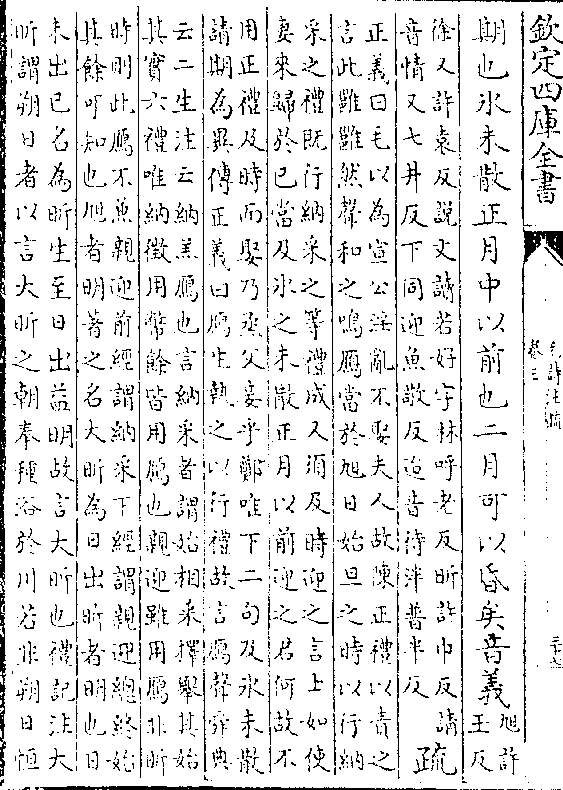 欽定四庫全書
毛詩注疏
卷三
三十六
期也冰未散正月中以前也二月可以昏矣音義
旭許
王反
徐又許袁反説文讀若好字林呼老反昕許巾反請
音情又七井反下同迎魚敬反迨音待泮普半反
疏
正義曰毛以為宣公淫亂不娶夫人故陳正禮以責之
言此雝雝然聲和之鳴鴈當於旭日始旦之時以行納
采之禮既行納采之等禮成又須及時迎之言士如使
妻來歸於已當及冰之未散正月以前迎之君何故不
用正禮及時而娶乃烝父妾乎鄭唯下二句及冰未散
請期為異傳正義曰鴈生執之以行禮故言鴈聲舜典
云二生注云納羔鴈也言納采者謂始相采擇舉其始
其實六禮唯納徵用幣餘皆用鴈也親迎雖用鴈非昕
時則此鴈不兼親迎前經謂納采下經謂親迎總終始
其餘可知也旭者明著之名大昕為日出昕者明也日
未出已名為昕生至日出益明故言大昕也禮記注大
昕謂朔日者以言大昕之朝奉種浴於川若非朔日恒